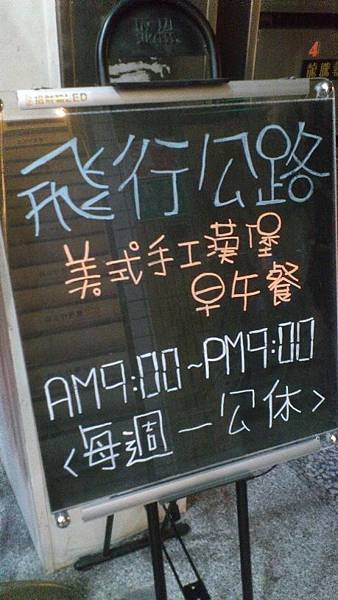 招財貓LED
飛行公路
美式手工漢堡
早午餐
AM9:00~PM9:00
<每週一公休>
4